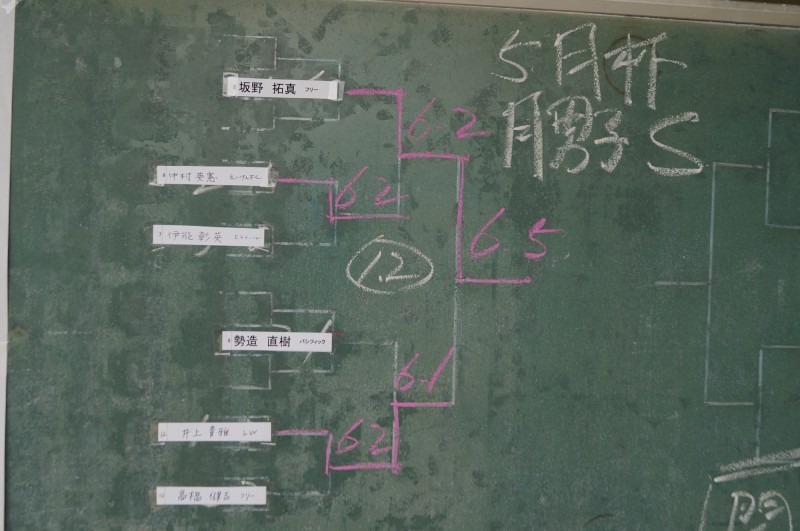 5月杯
月男子S
坂野 拓真 フリー
6.2
中村 英憲
6.2
伊能 彰英
6.5
1.2
勢造 直樹 パシフィック
6.1
井上 貴雅 LW
62
高橋 フリー